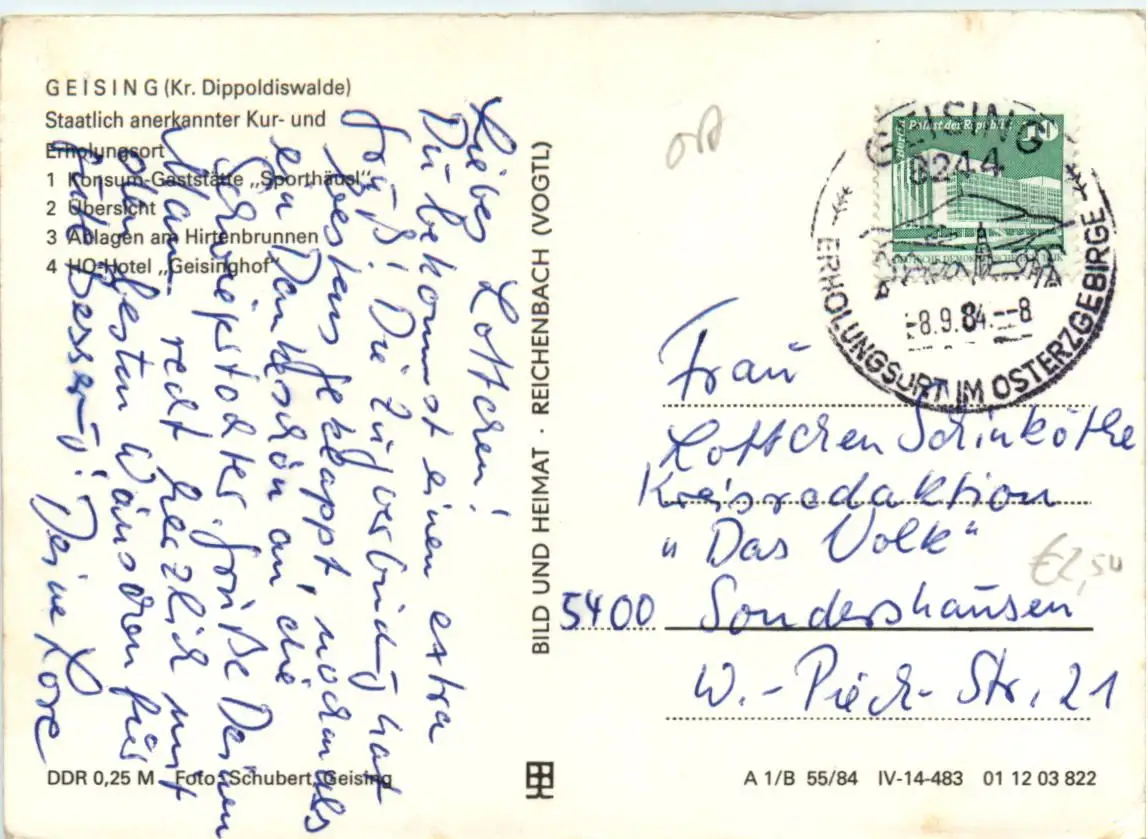 GEISING (Kr. Dippoldiswalde)
Staatlich anerkannter Kur- und
Erholungsort
1 Konsum-Gaststätte „Sporthäusl"
2 Übersicht
3 Ablagen am Hirtenbrunnen
4 HO-Hotel „Geisinghof"
Liebes Lottchen!
Du bekommst einen extra
Gruß! Die Zugverbindg hat
bestens geklappt, nochmals
ein Dankeschön an die
Grüße Deinen
Mann recht herzlich mit
den besten Wünschen für
Deine Lore
DDR 0,25 M Foto: Schubert, Geising
BILD UND HEIMAT · REICHENBACH (VOGTL)
ort
Berlin Palast der Republik
GEISING
8244
-8.9.84.--8
ERHOLUNGSORT IM OSTERZGEBIRGE
Frau
Lottchen Schinköthe
Kreisredaktion
"Das Volk"
5400 Sondershausen
W.-Pieck-Str. 21
€2,50
A 1/B 55/84 IV-14-483 01 12 03 822